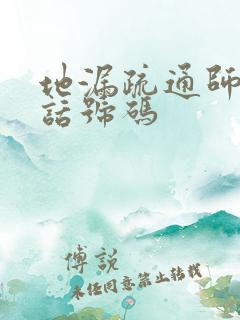 地漏疏通師
話號碼
傅説
未經同意禁止转载